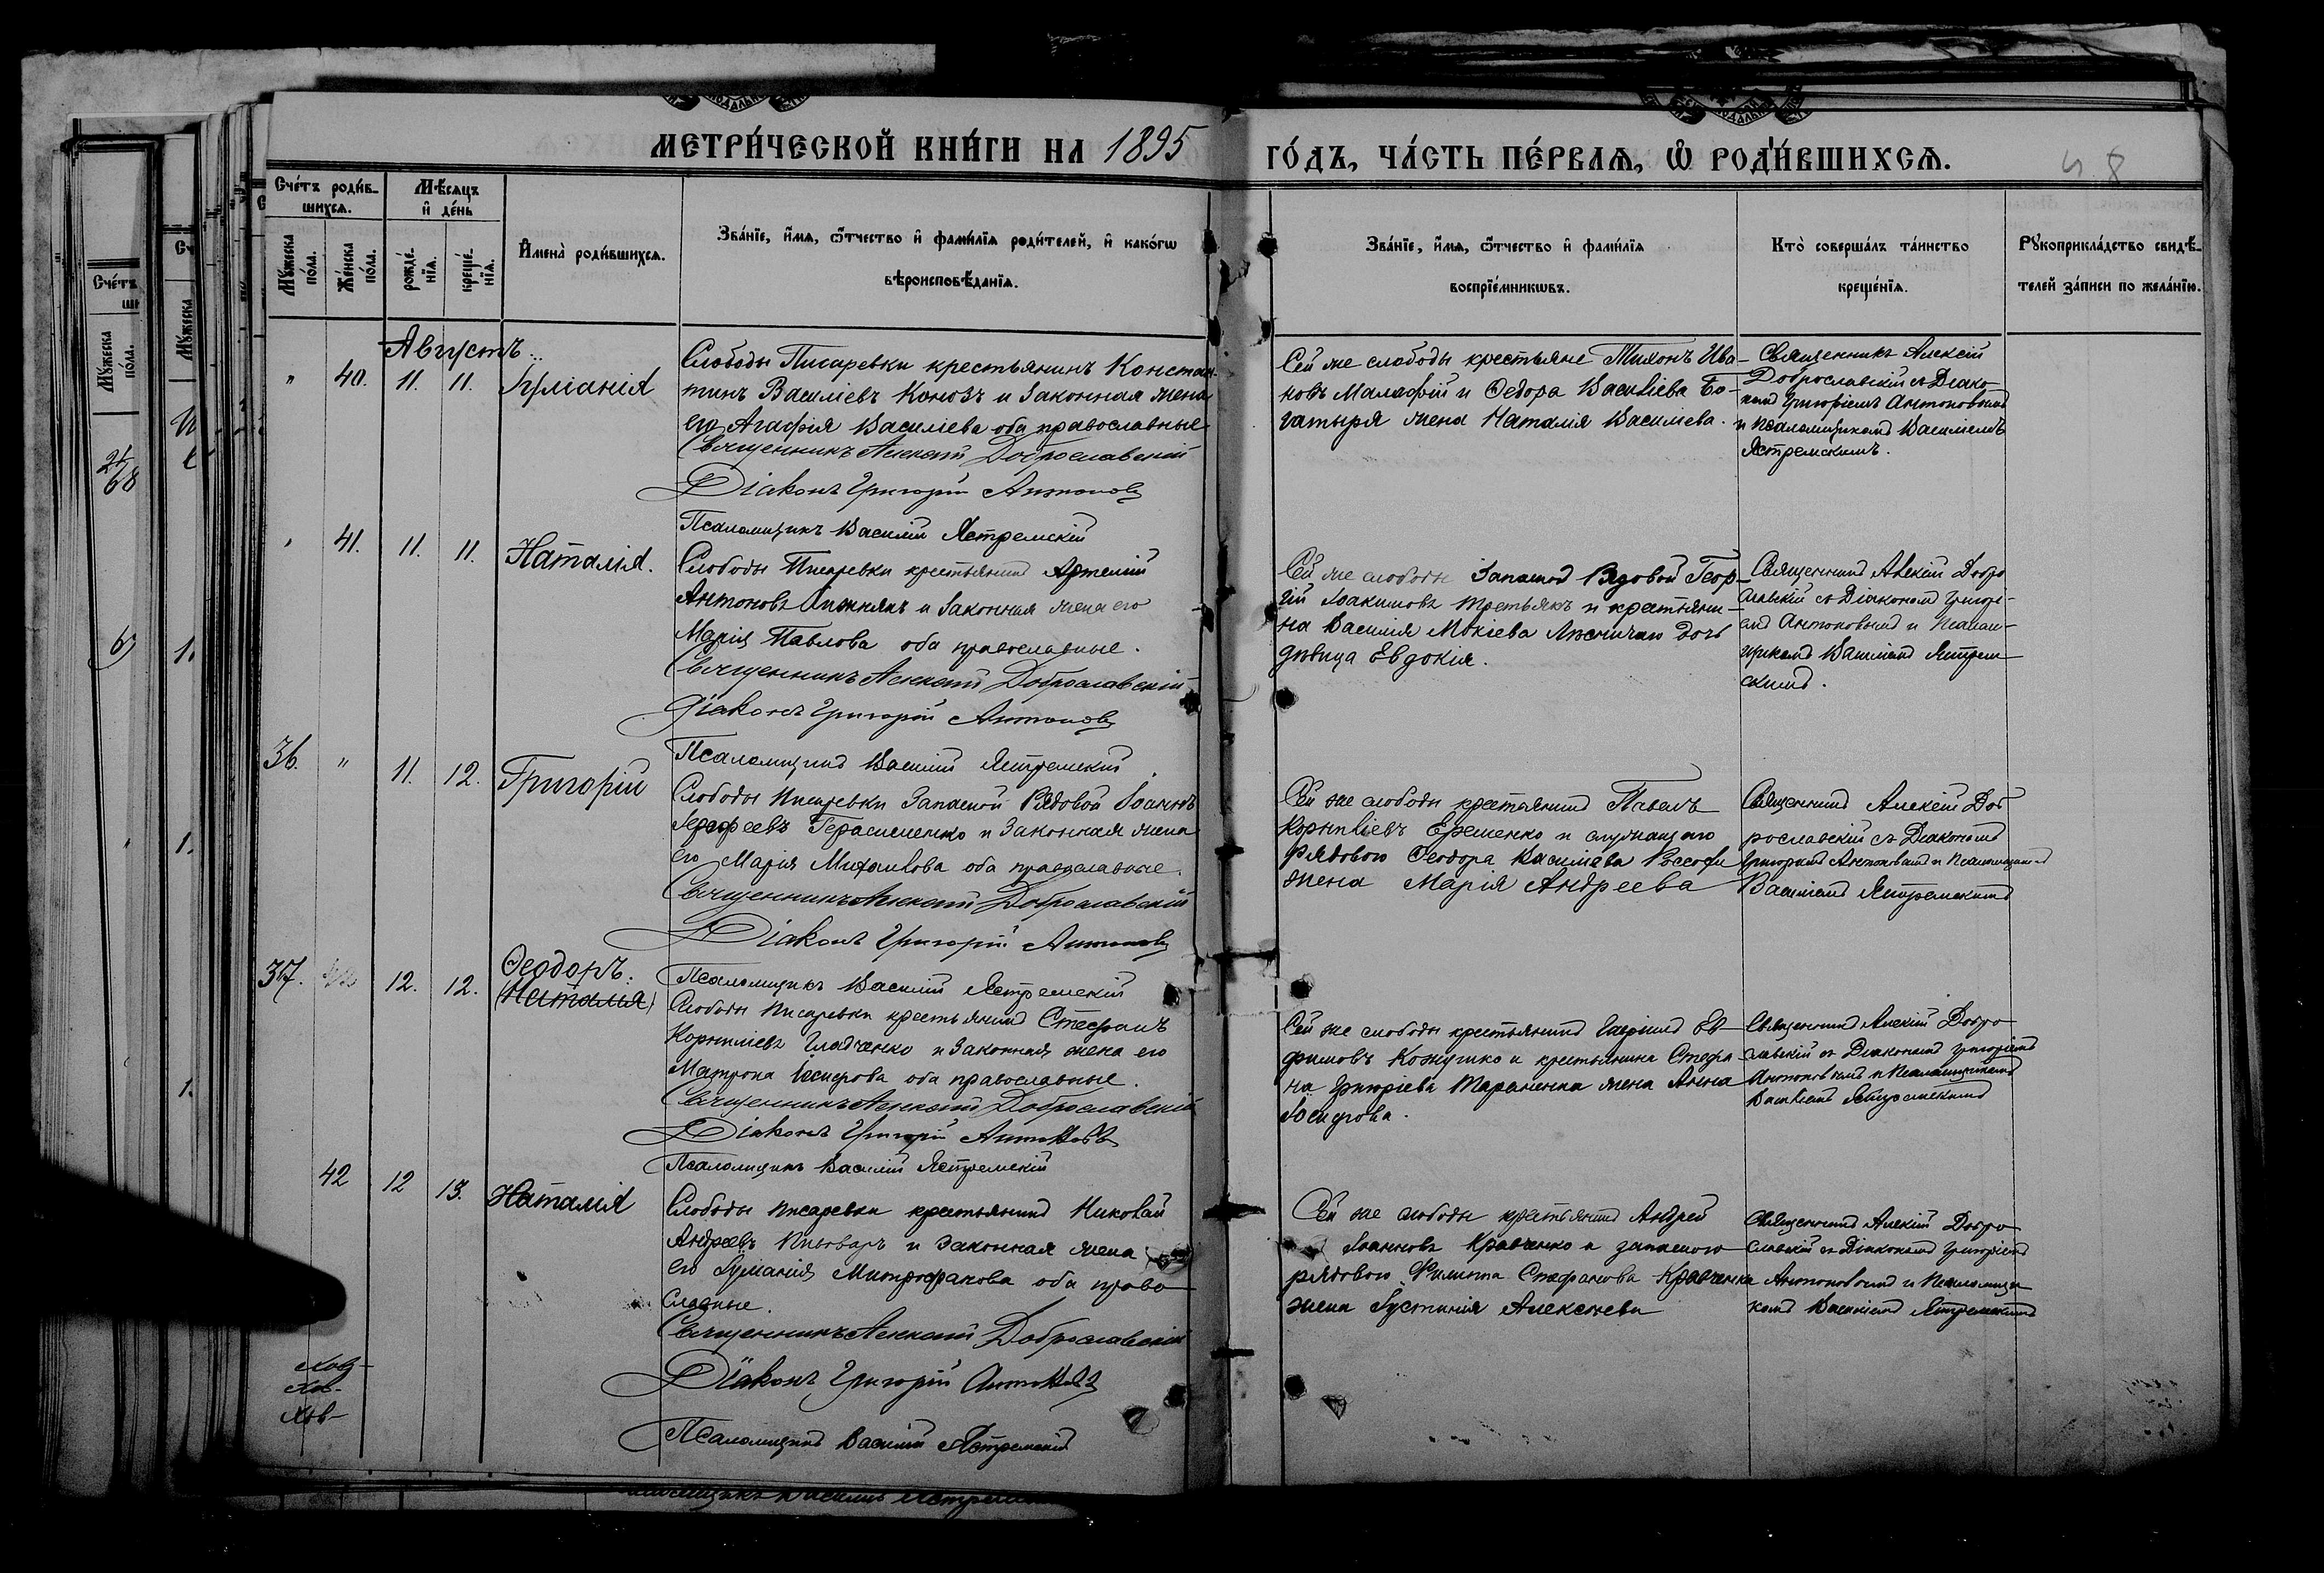 МЕТРИ́ЧЕСКОЙ КНИ́ГИ НА 1895
ГО́ДЪ, ЧА́СТЬ ПЕ́РВАѦ, Ѡ҆ РОДИ́ВШИХСѦ.
Сче́тъ роди́в-
шихсѧ.
Мѣ́сѧцъ
и҆ де́нь
Мꙋ́жеска
по́ла.
Же́нска
по́ла.
рожде́-
нїѧ.
креще́-
нїѧ.
И҆мена̀ роди́вшихсѧ.
Зва́нїе, и҆́мѧ, ѻ҆́тчество и҆ фами́лїѧ роди́телей, и҆ како́гѡ
вѣроисповѣ́данїѧ.
Зва́нїе, и҆́мѧ, ѻ҆́тчество и҆ фами́лїѧ
воспрїе́мникѡвъ.
Кто̀ соверша́лъ та́инство
креще́нїѧ.
Рꙋкоприкла́дство свидѣ́-
телей за́писи по жела́нїю.
Августъ
" 40. 11. 11. Іуліанія
Слободы Писаревки крестьянинъ Констан-
тинъ Василіевъ Коновъ и законная жена
его Агафія Василіева оба православные
Священникъ Алексій Доброславскій
Діаконъ Григорій Антоновъ
Псаломщикъ Василій Ястремскій
Сей же слободы крестьяне Тихонъ Ива-
новъ Малафій и Ѳедора Василіева Бо-
гатыря жена Наталія Василіева.
Священникъ Алексій
Доброславскій съ Діако-
номъ Григоріемъ Антоновымъ
и Псаломщикомъ Василіемъ
Ястремскимъ.
" 41. 11. 11. Наталія.
Слободы Писаревки крестьянинъ Артемій
Антоновъ и законная жена его
Марія Павлова оба православные.
Священникъ Алексій Доброславскій
Діаконъ Григорій Антоновъ
Псаломщикъ Василій Ястремскій
Сей же слободы запасной Рядовой Геор-
гій Іоакимовъ Третьякъ и крестьяни-
на Василія Мокіева дочь
дѣвица Евдокія.
Священникъ Алексій Добро
славскій съ Діакономъ Григорі-
емъ Антоновымъ и Псалом-
щикомъ Василіемъ Ястрем-
скимъ.
36. " 11. 12. Григорій
Слободы Писаревки Запасной Рядовой Іоаннъ
Герасименко и законная жена
его Марія Михаилова оба православные.
Священникъ Алексій Доброславскій
Діаконъ Григорій Антоновъ
Псаломщикъ Василій Ястремскій
Сей же слободы крестьянинъ Павелъ
Корниліевъ Еременко и служащаго
рядового Ѳеодора Василіева
жена Марія Андреева
Священникъ Алексій Доб
рославскій съ Діакономъ
Григоріемъ Антоновымъ и Псаломщикомъ
Василіемъ Ястремскимъ
37. 12. 12. Ѳеодоръ.
(Наталія)
Слободы Писаревки крестьянинъ Стефанъ
Корниліевъ Гладченко и законная жена его
Матрона оба православные.
Священникъ Алексій Доброславскій
Діаконъ Григорій Антоновъ
Псаломщикъ Василій Ястремскій
Сей же слободы крестьянинъ Гавріилъ Ев-
фимовъ Кожушко и крестьянина Стефа-
на Григоріева Тараненка жена Анна
Священникъ Алексій Добро
славскій съ Діакономъ Григоріемъ
Антоновымъ и Псаломщикомъ
Василіемъ Ястремскимъ
42 12 13. Наталія
Слободы Писаревки крестьянинъ Николай
Андреевъ Пивоваръ и законная жена
его Іуліанія Митрофанова оба право-
славные.
Священникъ Алексій Доброславскій
Діаконъ Григорій Антоновъ
Псаломщикъ Василій Ястремскій
Сей же слободы крестьянинъ Андрей
Іоанновъ Кравченко и запасного
рядового Филиппа Стефанова Кравченка
жена Іустинія Алексѣева
Священникъ Алексій Добро
славскій съ Діакономъ Григоріемъ
Антоновымъ и Псаломщи
комъ Василіемъ Ястремскимъ